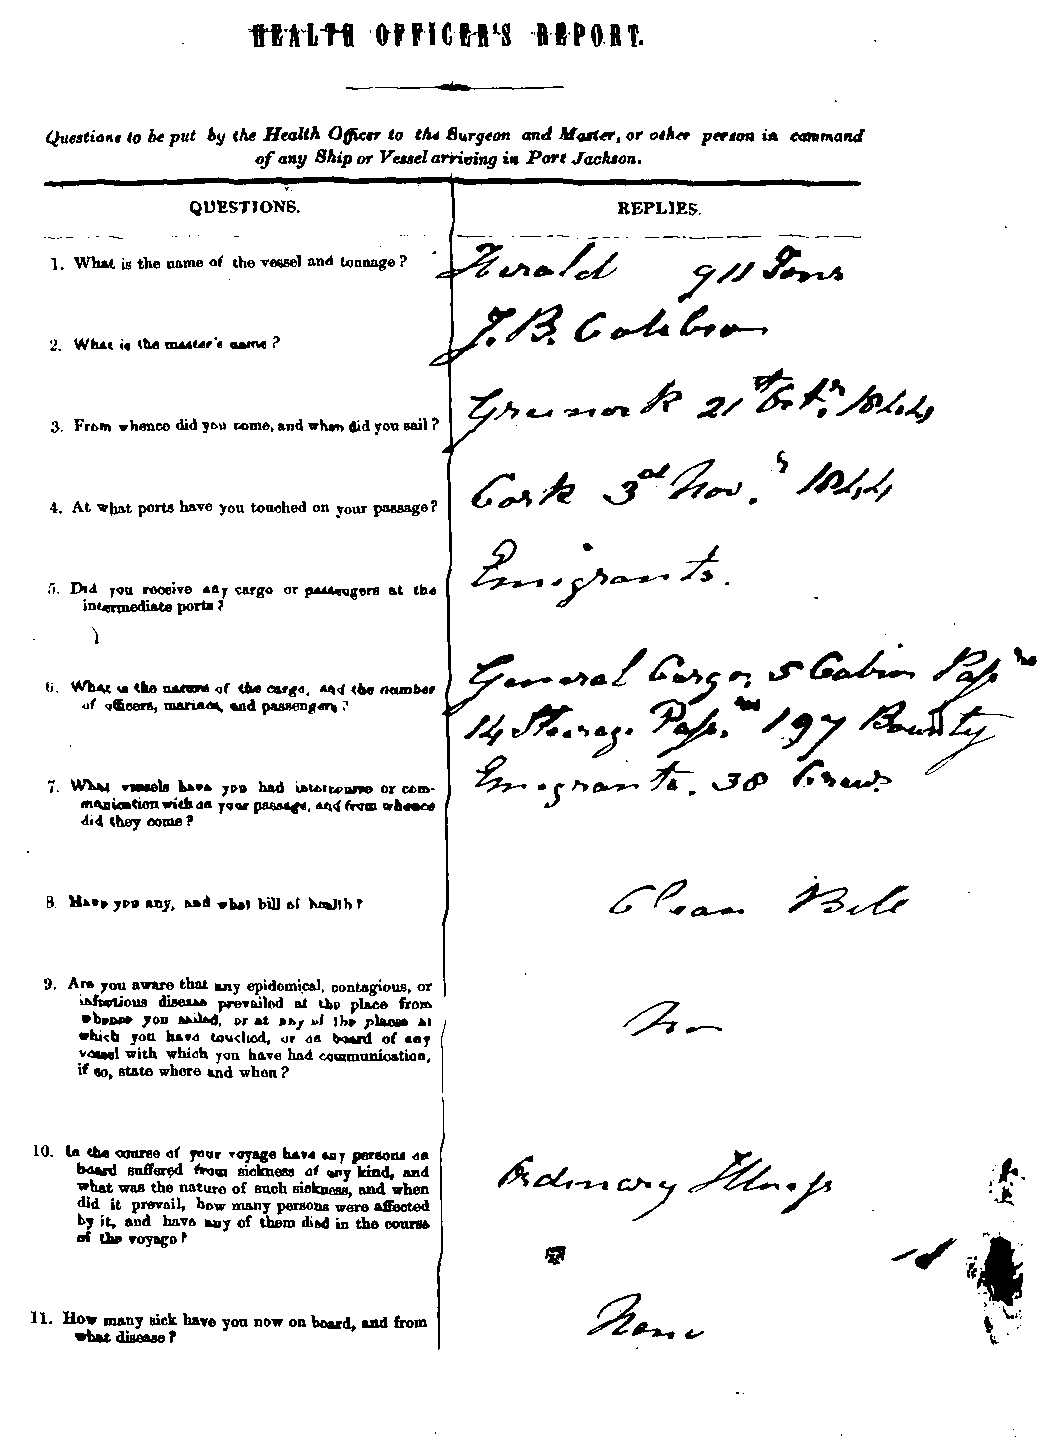 HEALTH OFFICER'S REPORT.
Questions to be put by the Health Officer to the Surgeon and Master, or other person in command
of any Ship or Vessel arriving in Port Jackson.
QUESTIONS.
REPLIES.
1. What is the name of the vessel and tonnage?
Herald 911 Tons
2. What is the master's name?
J. B.
3. From whence did you come, and when did you sail?
Greenock 21st Octr. 1844
4. At what ports have you touched on your passage?
Cork 3rd Novr. 1844
5. Did you receive any cargo or passengers at the
intermediate ports?
Emigrants.
6. What is the nature of the cargo, and the number
of officers, mariners, and passengers?
General Cargo, 5 Cabin Passrs
14 Steerage Passrs. 197 Bounty
Emigrants. 38 Crew
7. What vessels have you had intercourse or com-
munication with on your passage, and from whence
did they come?
8. Have you any, and what bill of health?
Clean Bill
9. Are you aware that any epidemical, contagious, or
infectious disease prevailed at the place from
whence you sailed, or at any of the places at
which you have touched, or on board of any
vessel with which you have had communication,
if so, state where and when?
No
10. In the course of your voyage have any persons on
board suffered from sickness of any kind, and
what was the nature of such sickness, and when
did it prevail, how many persons were affected
by it, and have any of them died in the course
of the voyage?
Ordinary Illness
11. How many sick have you now on board, and from
what disease?
None